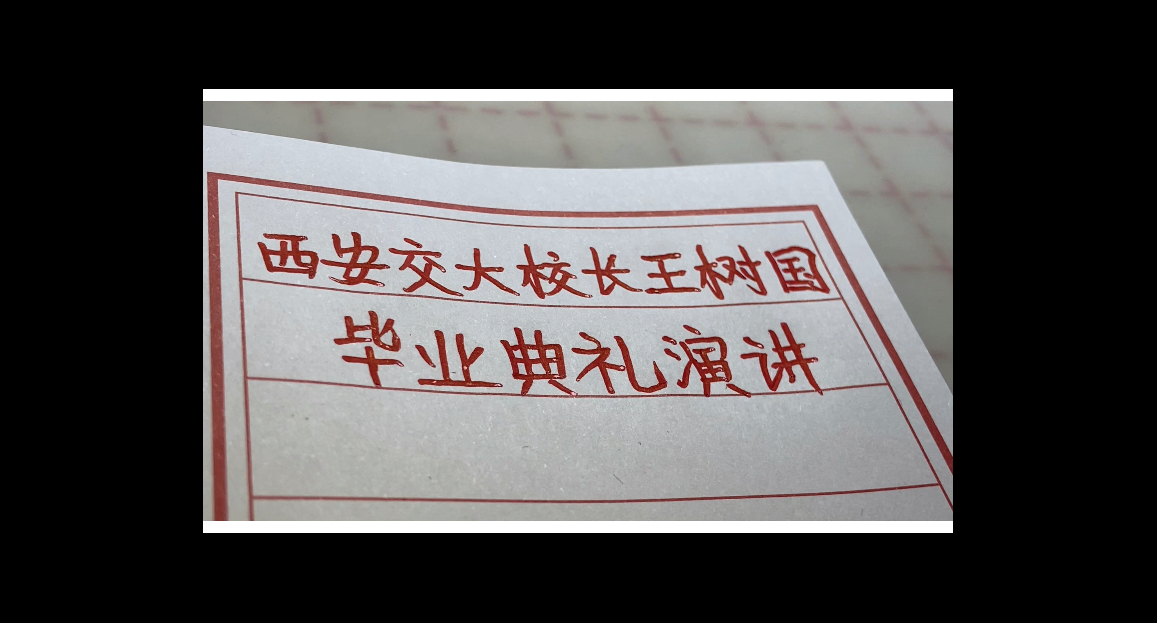 西安交大校长王树国
毕业典礼演讲